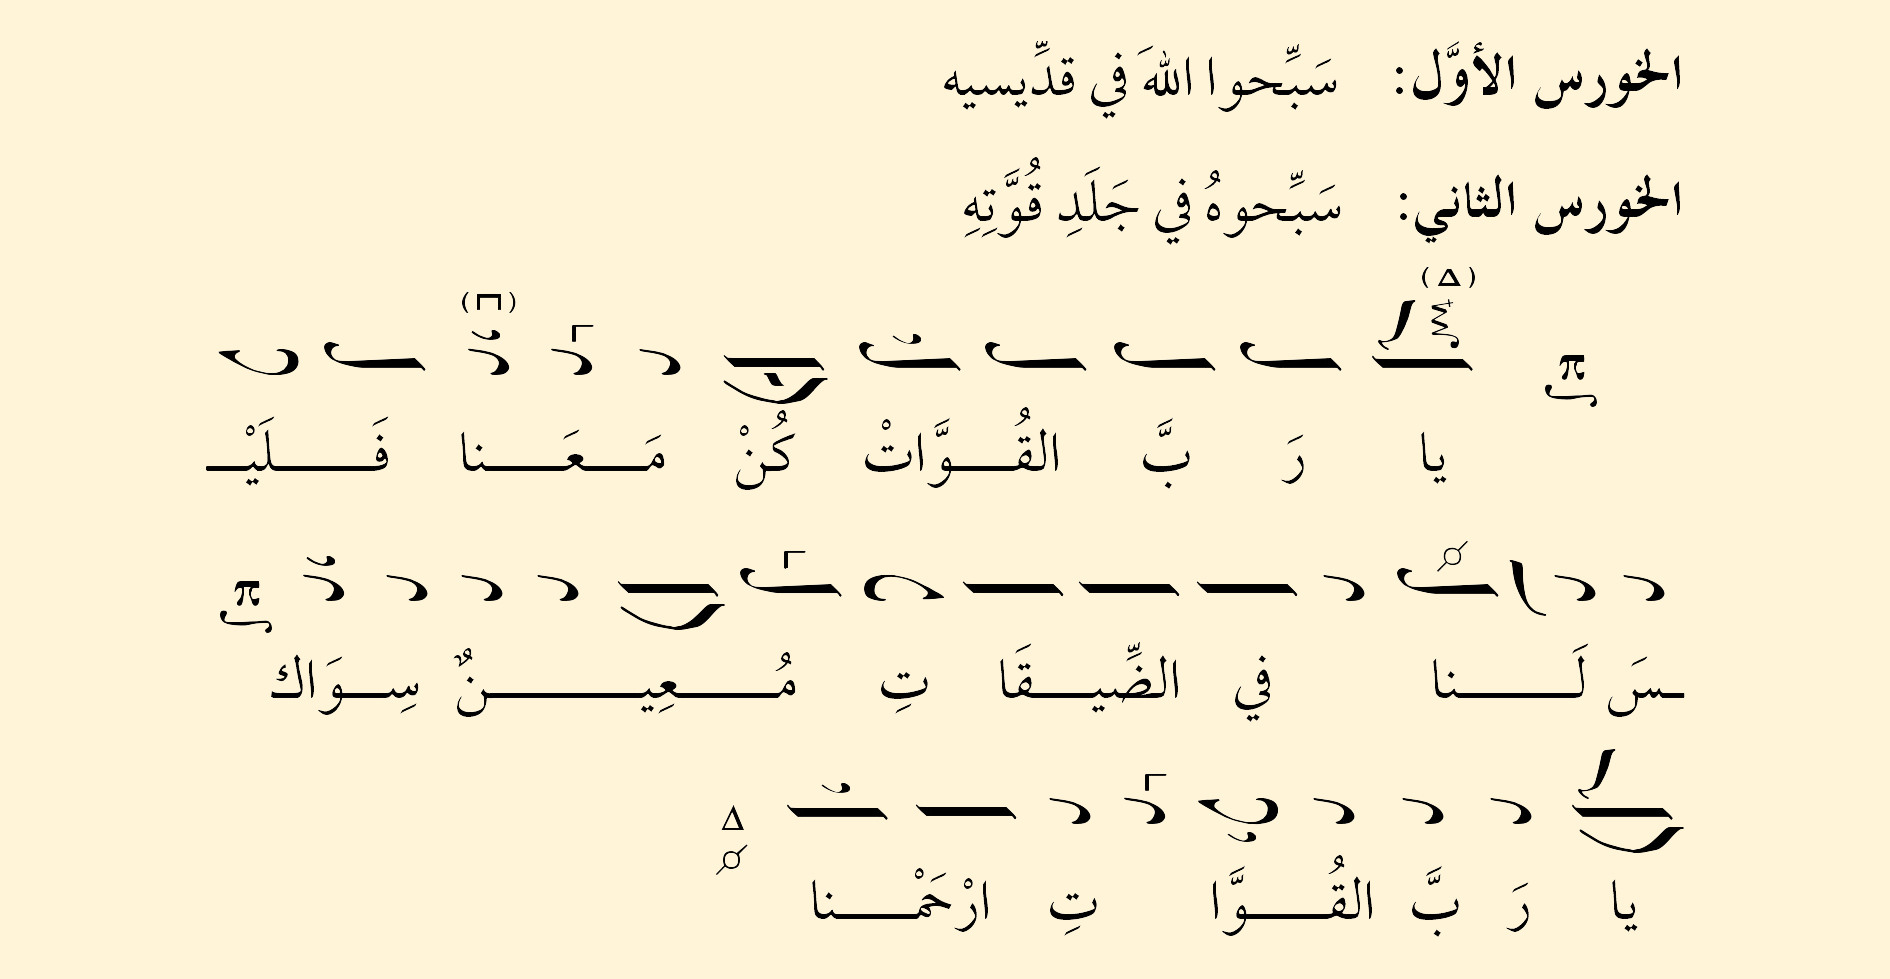 الخورس الأوَّل: سَبِّحوا اللهَ في قدِّيسيه
الخورس الثاني: سَبِّحوهُ في جَلَدِ قُوَّتِهِ
(Δ) (Π)
π
يا رَ بَّ القُـــوَّاتْ كُنْ مَـــعَـــنا فَـــلَيْـ
π
ـسَ لَـــنا في الضِّيـــقَا تِ مُـــعِيـــنٌ سِـــوَاك
Δ
يا رَ بَّ القُـــوَّا تِ ارْحَمْـــنا